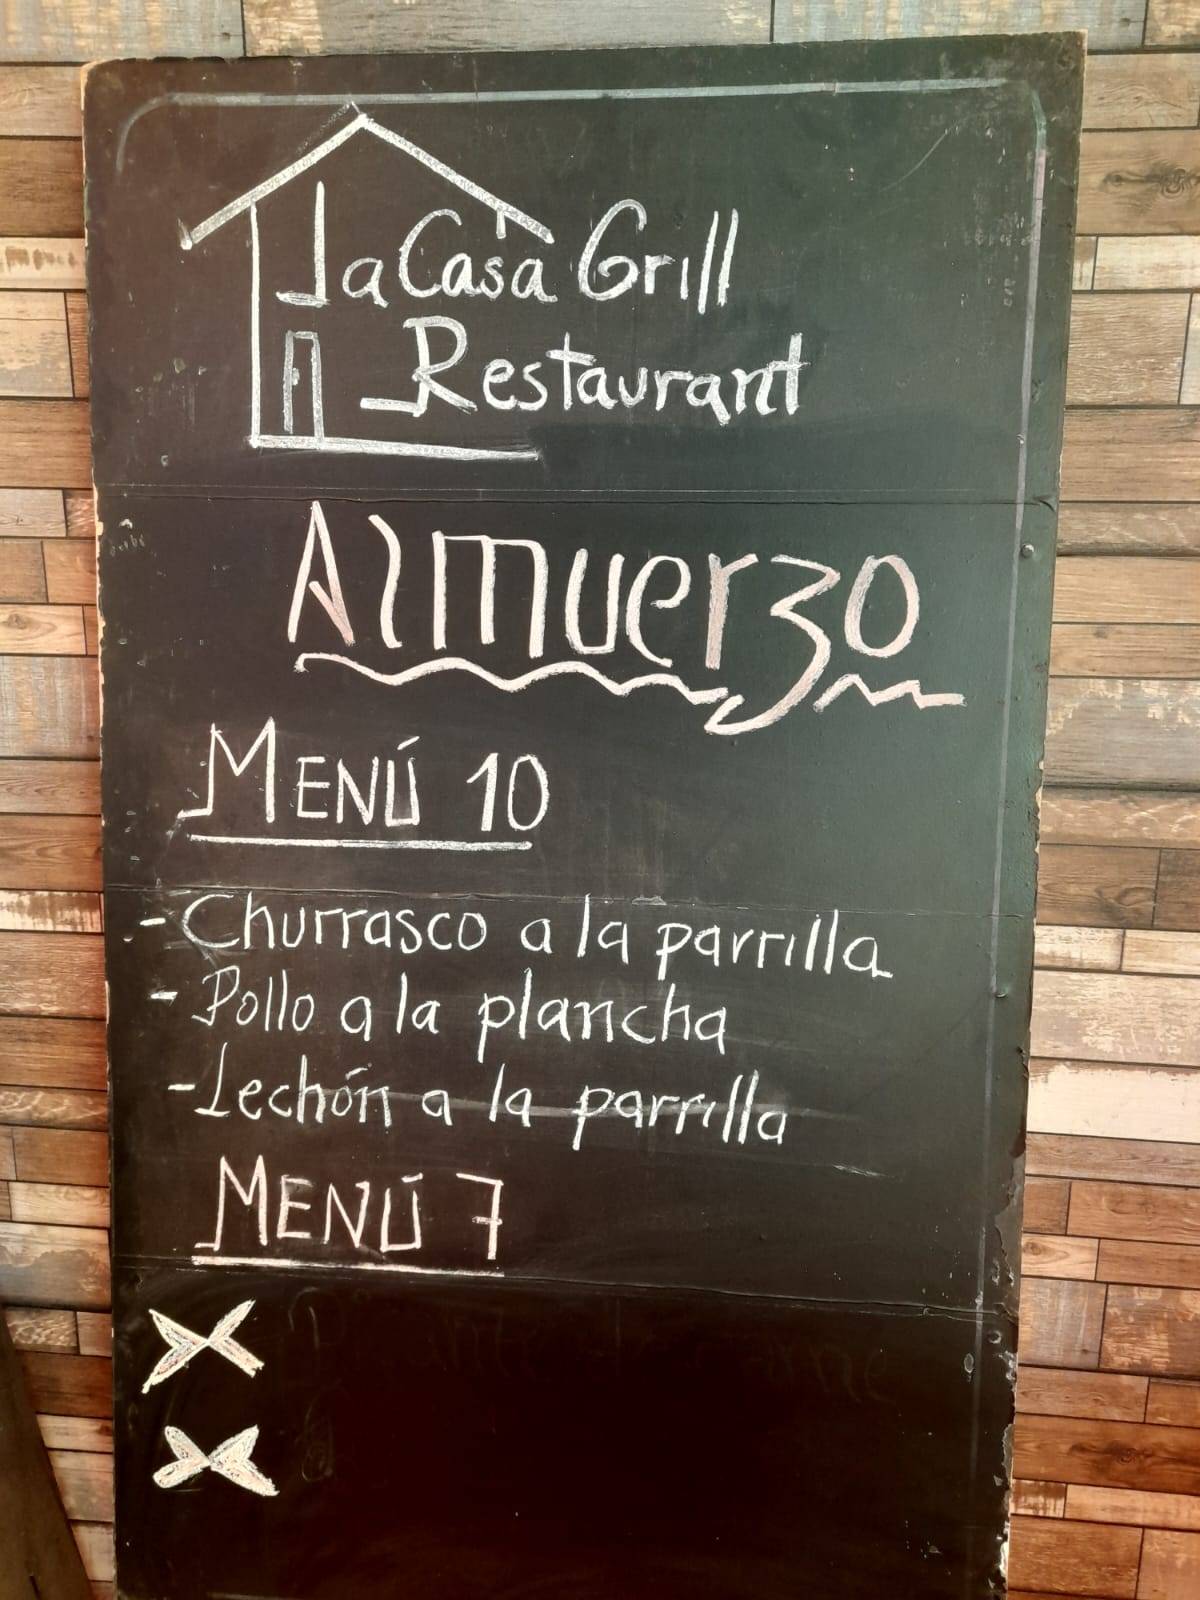 La Casa Grill
Restaurant
Almuerzo
MENÚ 10
- Churrasco a la parrilla
- Pollo a la plancha
- Lechón a la parrilla
MENÚ 7